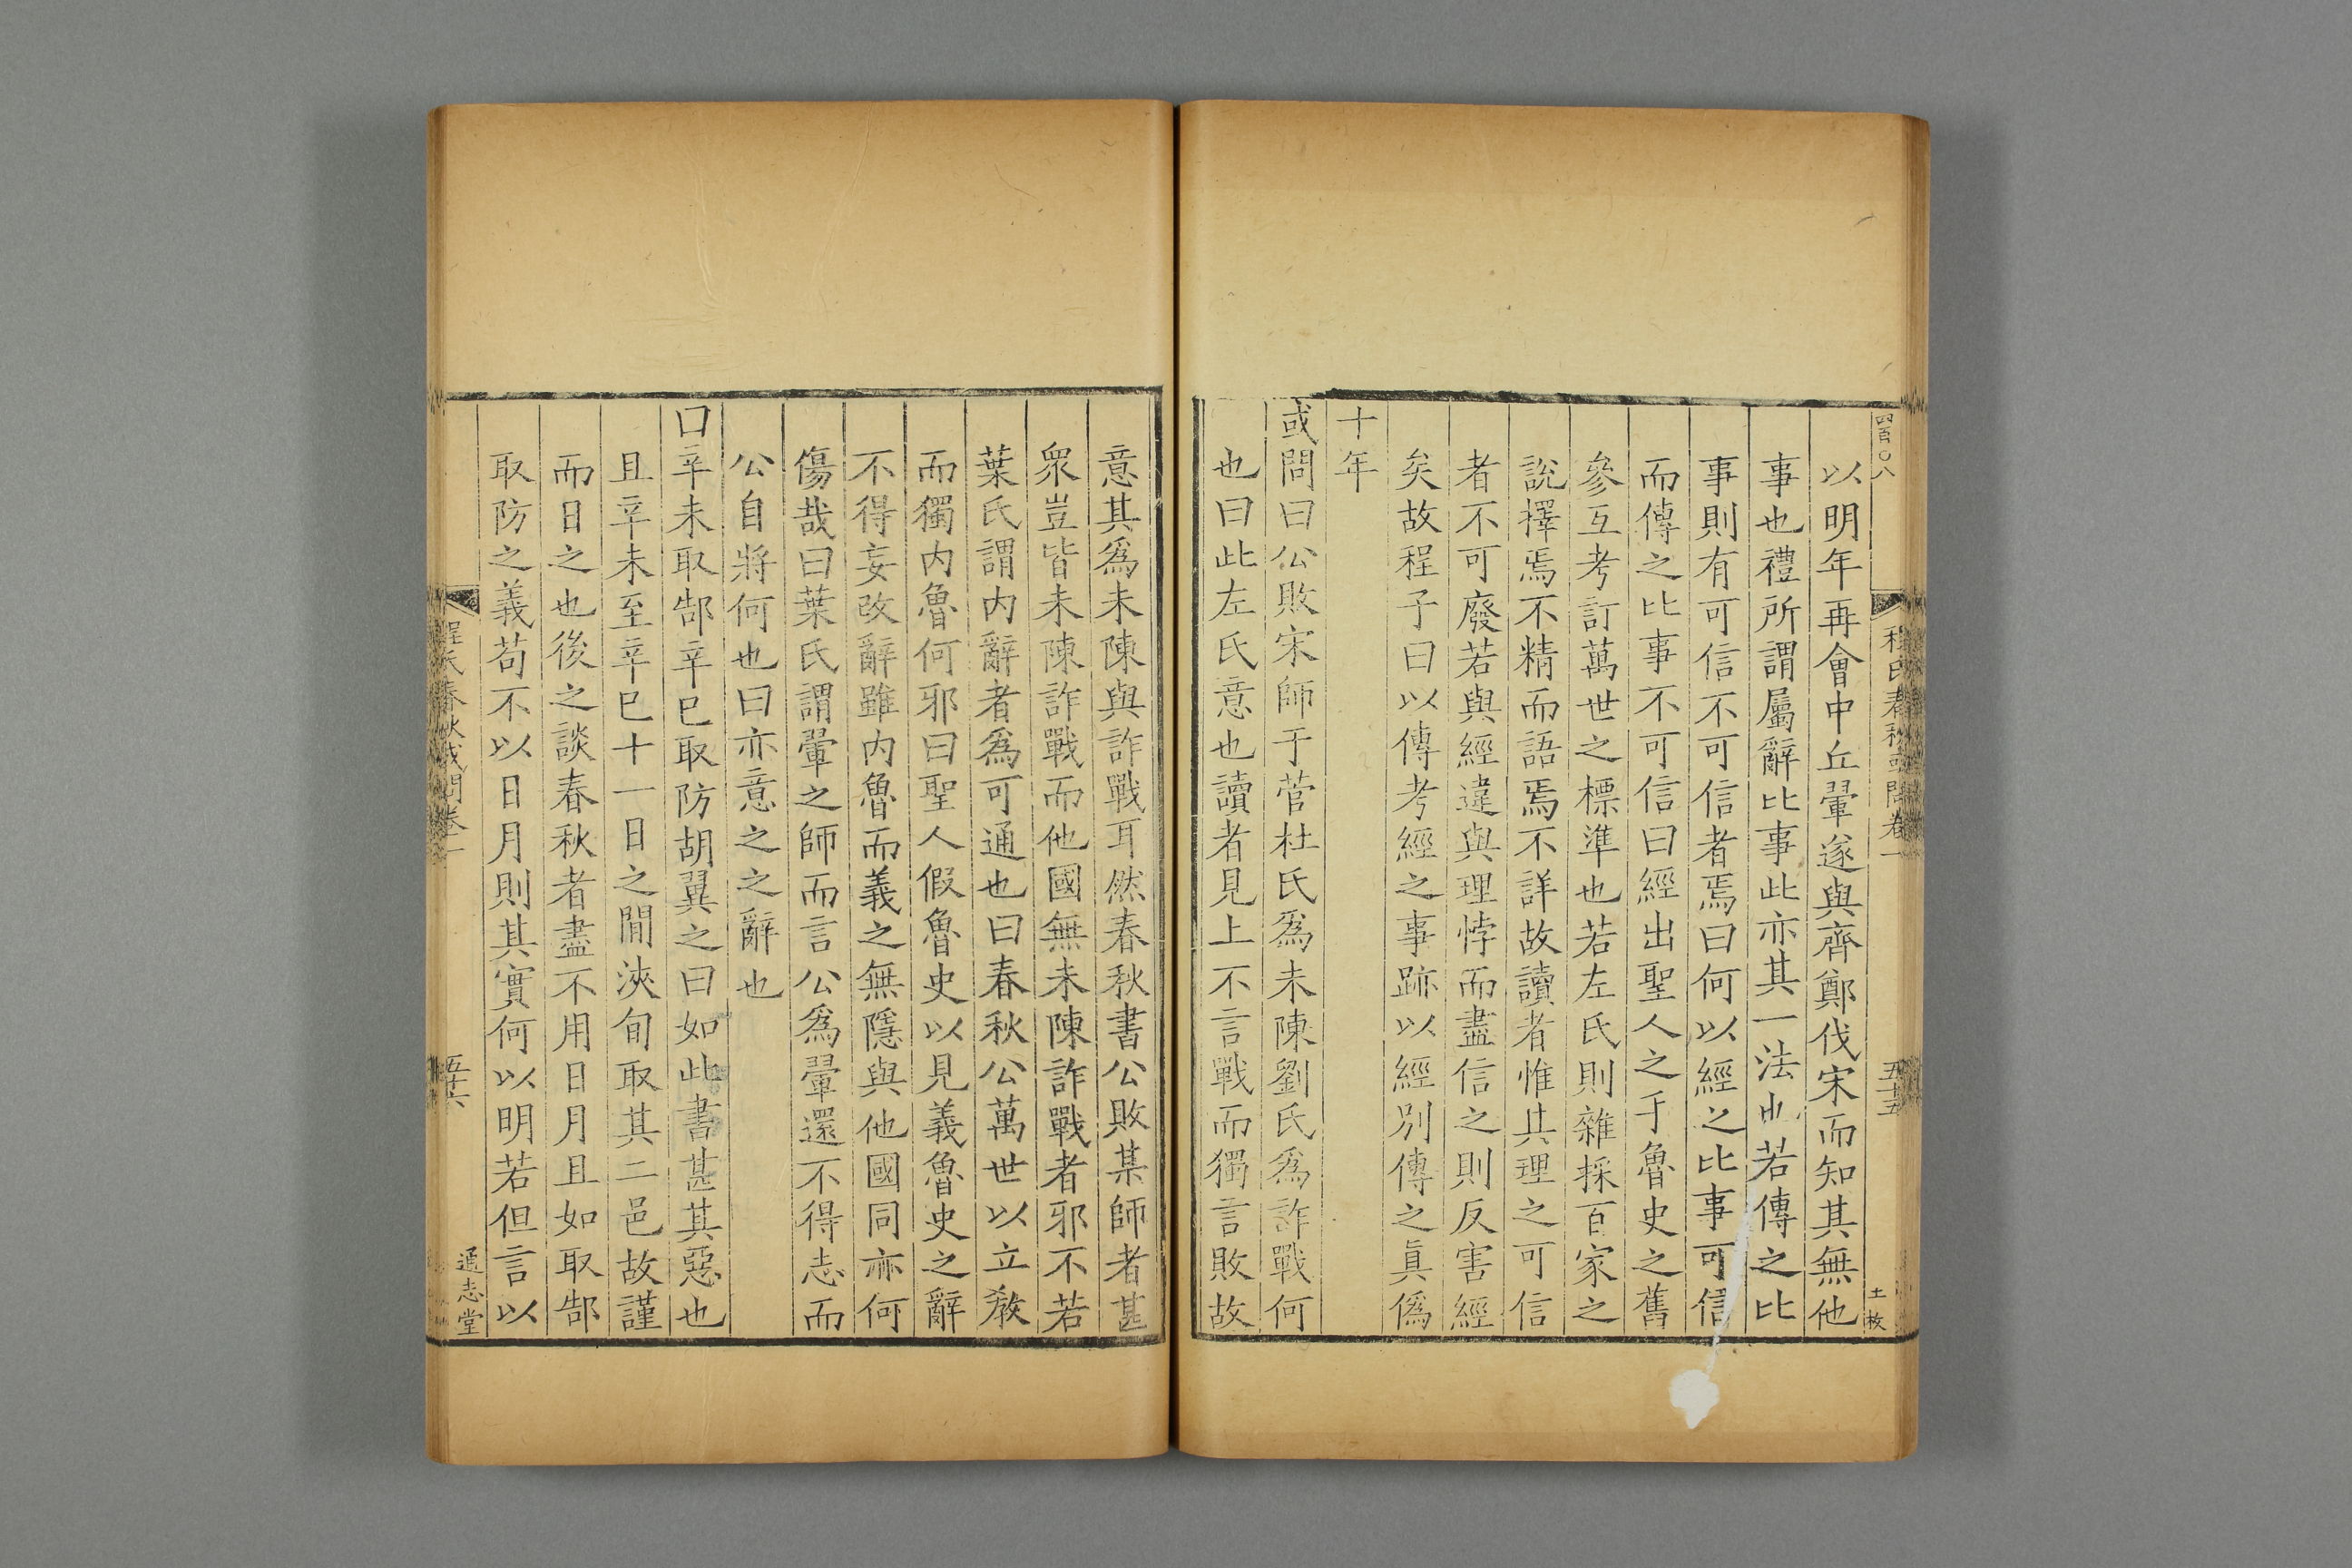 四百〇八
程氏春秋或問卷一
五十五
土枚
以明年再會中丘翬遂與齊鄭伐宋而知其無他
事也禮所謂屬辭比事此亦其一法也若傳之比
事則有可信不可信者焉曰何以經之比事可信
而傳之比事不可信曰經出聖人之手魯史之舊
參互考訂萬世之標準也若左氏則雜採百家之
說擇焉不精而語焉不詳故讀者惟其理之可信
者不可廢若與經違與理悖而盡信之則反害經
矣故程子曰以傳考經之事跡以經別傳之眞僞
十年
或問曰公敗宋師于菅杜氏爲未陳劉氏爲詐戰何
也曰此左氏意也讀者見上不言戰而獨言敗故
意其爲未陳與詐戰耳然春秋書公敗某師者甚
衆豈皆未陳詐戰而他國無未陳詐戰者邪不若
葉氏謂内辭者爲可通也曰春秋公萬世以立教
而獨内魯何邪曰聖人假魯史以見義魯史之辭
不得妄改辭雖内魯而義之無隱與他國同亦何
傷哉曰葉氏謂翬之師而言公爲翬還不得志而
公自將何也曰亦意之之辭也
曰辛未取郜辛巳取防胡翼之曰如此書甚其惡也
且辛未至辛巳十一日之閒浹旬取其二邑故謹
而日之也後之談春秋者盡不用日月且如取郜
取防之義苟不以日月則其實何以明若但言以
程氏春秋或問卷一
五十六
通志堂